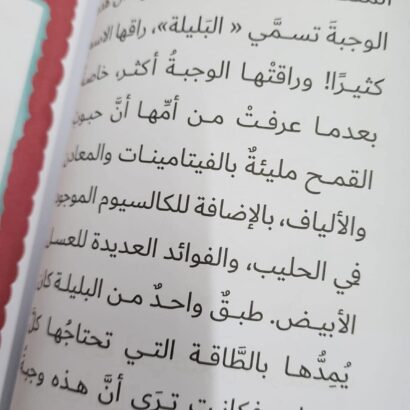 الوجبةَ تسـمَّي « البَليلة»، راقها الاسم
كثيـرًا! وراقتْهـا الوجبـةُ أكثـر، خاصة
بعدمـا عرفـتْ مـن أمِّهـا أنَّ حبوب
القمـح مليئةٌ بالفيتامينـات والمعادن
والألياف، بالإضافة للكالسيوم الموجود
في الحليب، والفوائد العديدة للعسل
الأبيـض. طبـقٌ واحـدٌ مـن البليلـة كان
يُمِدُّهـا بالطَّاقـة التـي تحتاجُهـا كلَّ
فكانـت تـرَى أنَّ هـذه وجبةٌ